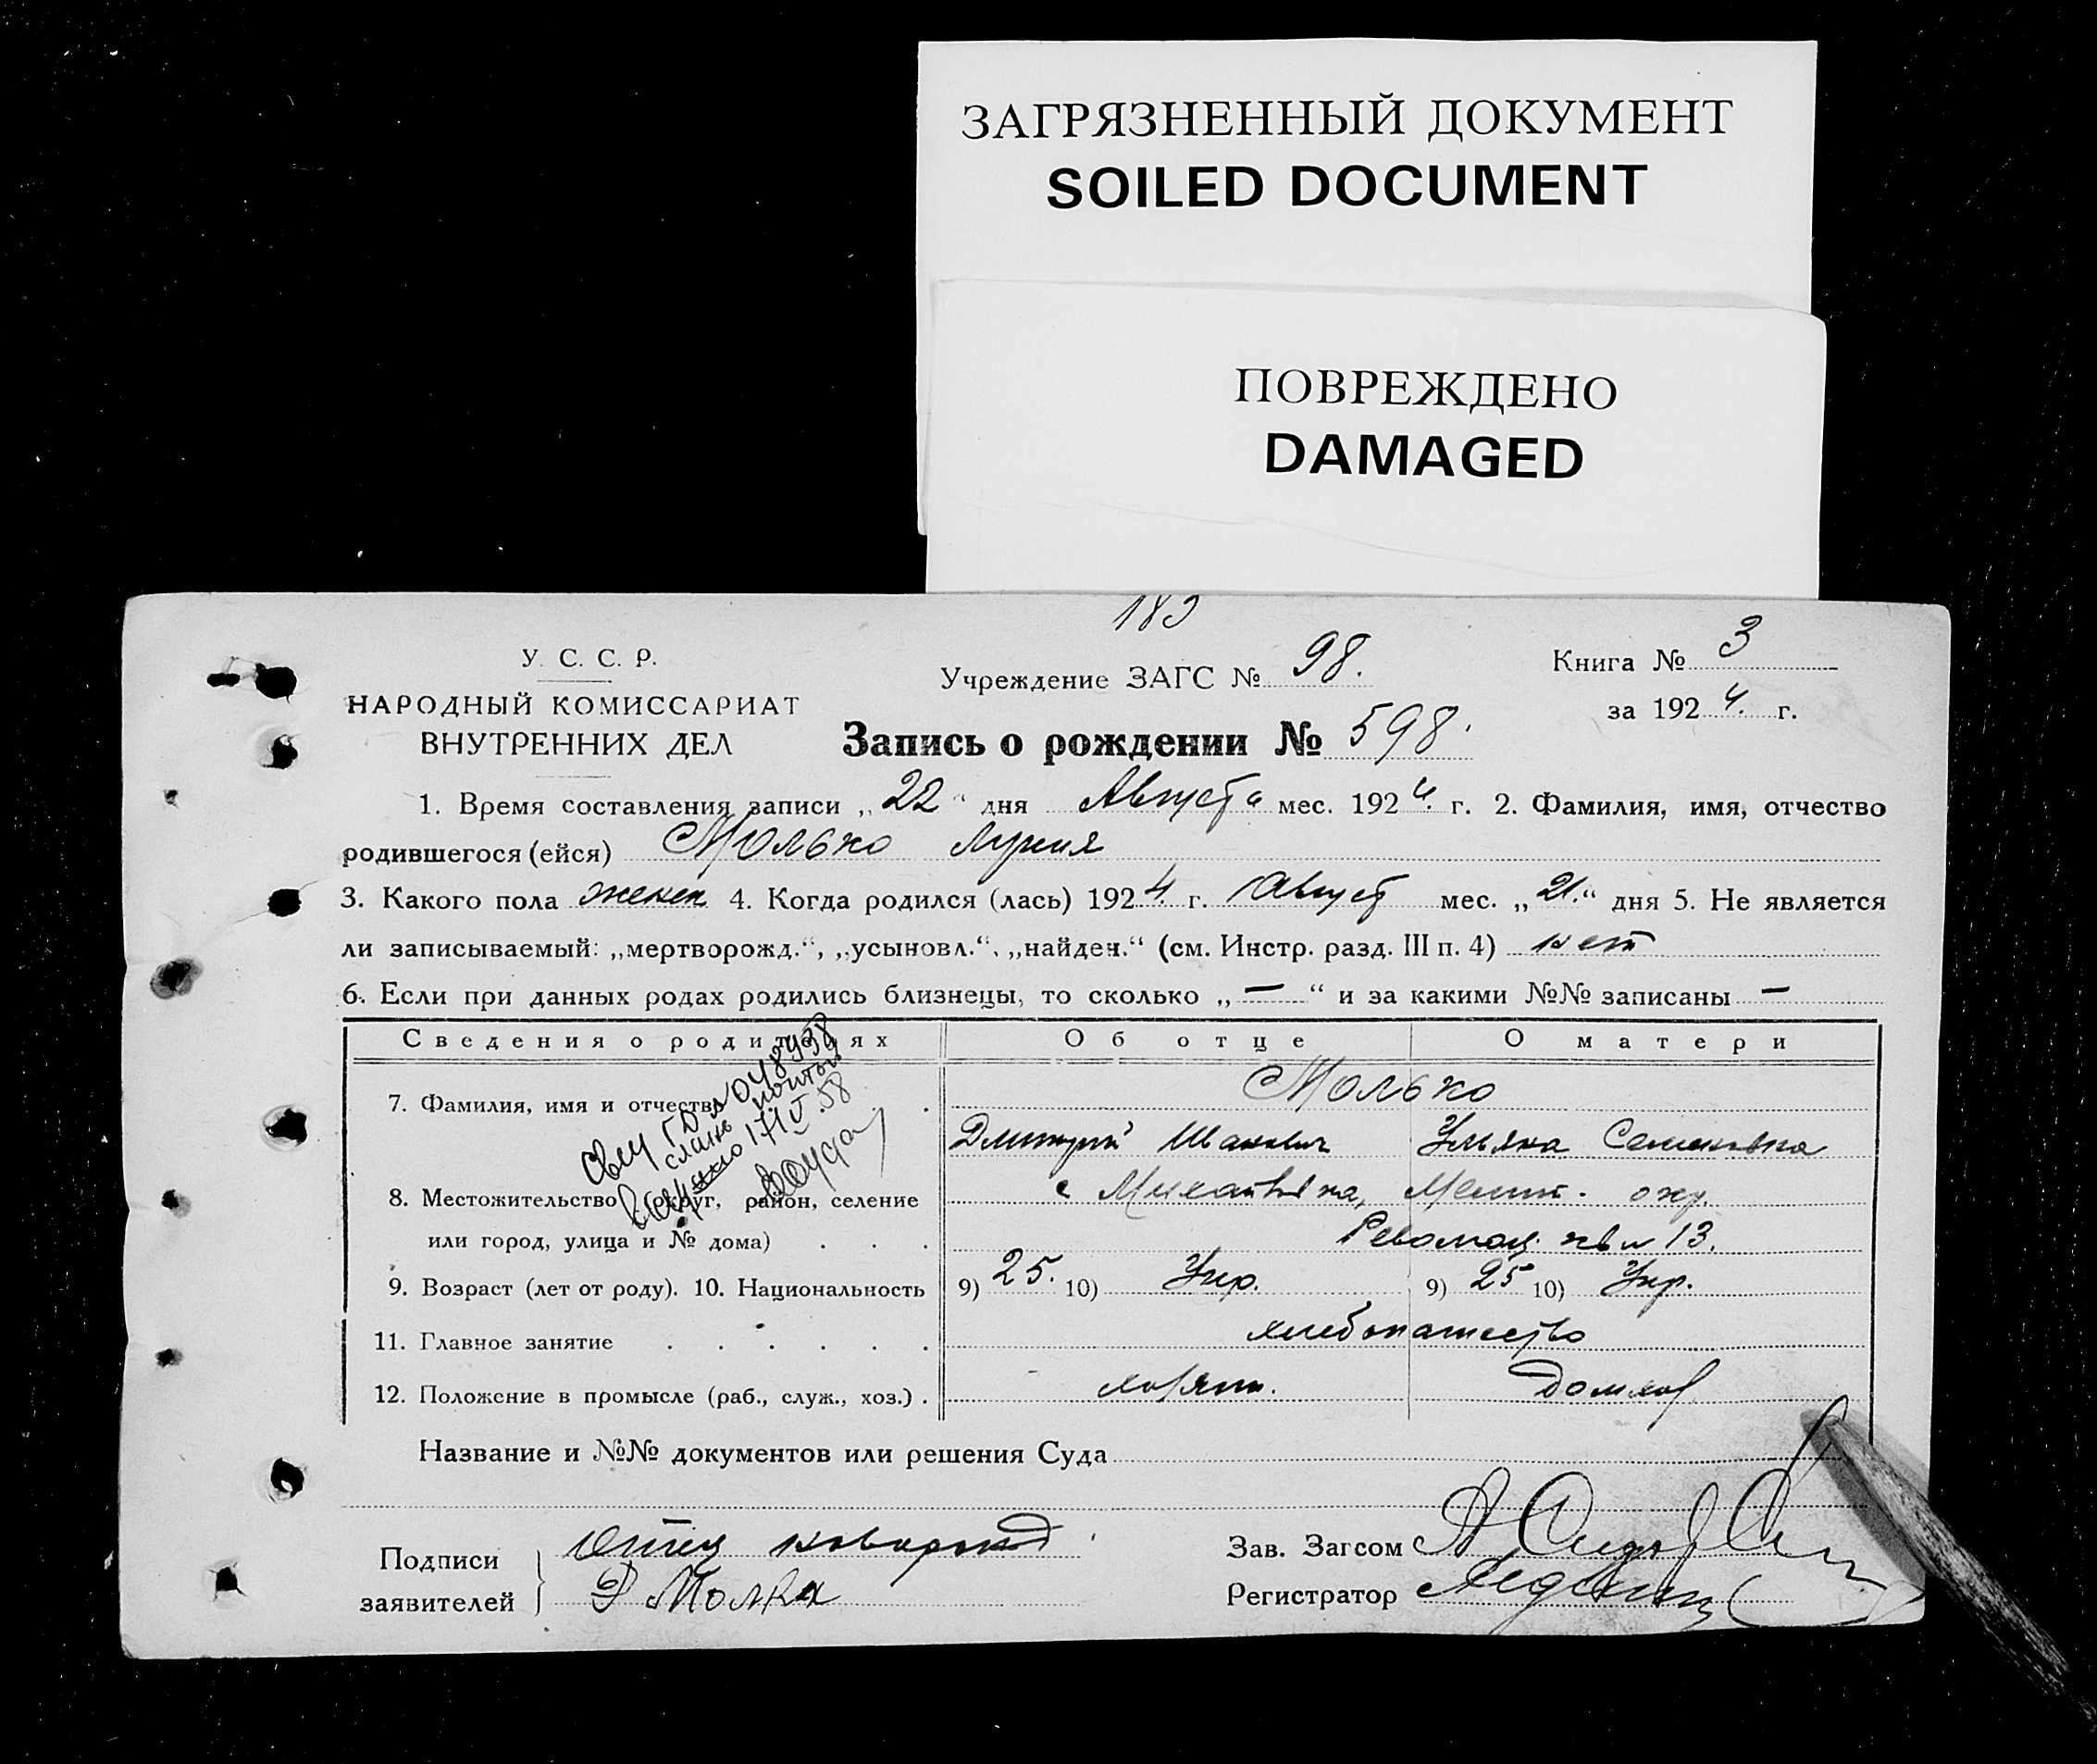 ЗАГРЯЗНЕННЫЙ ДОКУМЕНТ
SOILED DOCUMENT
ПОВРЕЖДЕНО
DAMAGED
183
У. С. С. Р.
НАРОДНЫЙ КОМИССАРИАТ
ВНУТРЕННИХ ДЕЛ
Учреждение ЗАГС № 98.
Книга № 3
за 1924. г.
Запись о рождении № 598.
1. Время составления записи „22“ дня Августа мес. 1924. г. 2. Фамилия, имя, отчество
родившегося (ейся) Молько Лукия
3. Какого пола женск 4. Когда родился (лась) 1924. г. Август мес. „21.“ дня 5. Не является
ли записываемый: „мертворожд.“, „усыновл.“, „найден.“ (см. Инстр. разд. III п. 4) нет
6. Если при данных родах родились близнецы, то сколько „—“ и за какими №№ записаны —
Сведения о родителях Об отце О матери
7. Фамилия, имя и отчество . Молько
Дмитрий Иванович Ульяна Семеновна
8. Местожительство (округ, район, селение с Михайловка, Мелит. окр.
или город, улица и № дома) . . . кв № 13.
9. Возраст (лет от роду). 10. Национальность 9) 25. 10) Укр. 9) 25 10) Укр.
11. Главное занятие . . . . . . хлебопашество
12. Положение в промысле (раб., служ., хоз.) . хозяин. домхоз
Название и №№ документов или решения Суда
Подписи
заявителей
отец новорожд
Д Молка
Зав. Загсом
Регистратор